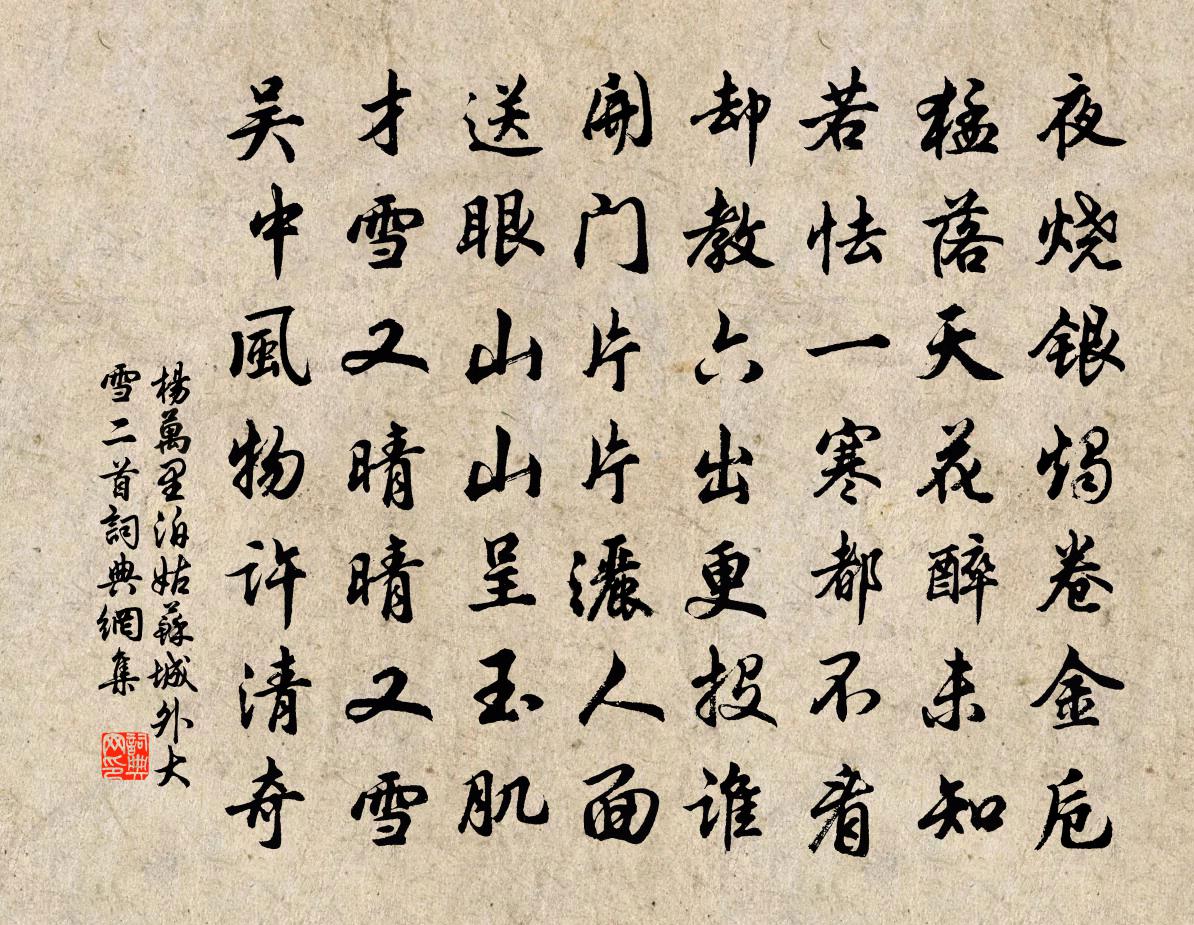 夜烧银烛卷金卮
猛落天花醉未知
若怯一寒都不看
却教六出更投谁
開门片片灑人面
送眼山山呈玉肌
才雪又晴晴又雪
吴中風物许清奇
楊萬里泊姑蘇城外大
雪二首詞典網集
詞典
网印